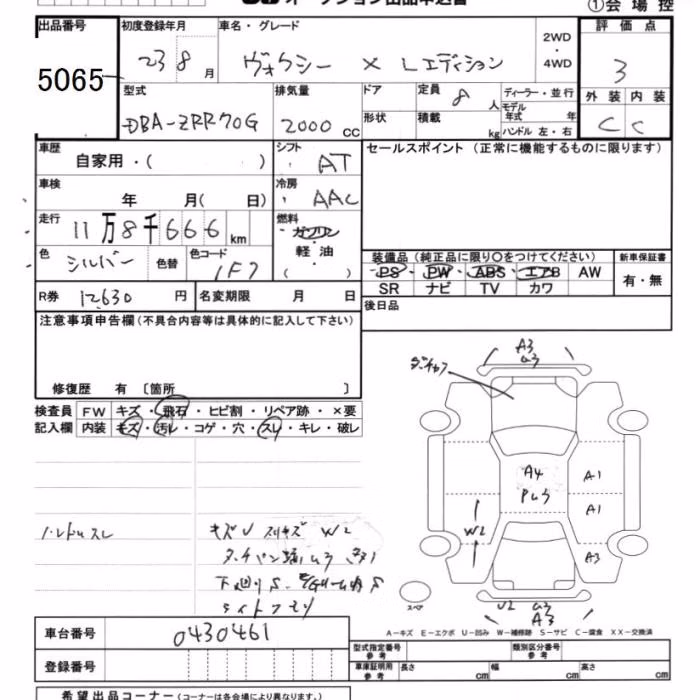 オークション出品申込書
①会場控
出品番号 初度登録年月 車名・グレード 2WD・4WD 評価点
5065 23 8月 ヴォクシー X Lエディション 3
型式 排気量 ドア 定員 8人 ディーラー・並行 外装 内装
DBA-ZRR70G 2000cc 形状 積載 kg モデル年式 年 ハンドル 左・右 C C
車歴 自家用・( ) シフト AT セールスポイント(正常に機能するものに限ります)
車検 年 月( 日) 冷房 AAC
走行 11万8千666km 燃料 ガソリン・軽油 ( )
色 シルバー 色替 色コード 1F7
装備品(純正品に限り○をつけてください) 新車保証書
PS・PW・ABS・エアB AW 有・無
SR ナビ TV カワ
R券 12,630円 名変期限 月 日 後日品
注意事項申告欄(不具合内容等は具体的に記入して下さい)
修復歴 有 〔箇所 〕
検査員 FW キズ・飛石・ヒビ割・リペア跡・×要
記入欄 内装 キズ・汚レ・コゲ・穴・スレ・キレ・破レ
A3
A4
A1
A1
W2
A3
ハンドルスレ キズU スリキズ W2
下回りS
U2
A3
スペア
A-キズ E-エクボ U-凹み W-補修跡 S-サビ C-腐食 XX-交換済
車台番号 0430461
型式指定番号 参考 類別区分番号 参考
登録番号
車庫証明用 参考 長さ cm 幅 cm 高さ cm
希望出品コーナー(コーナーは各会場により異なります。)